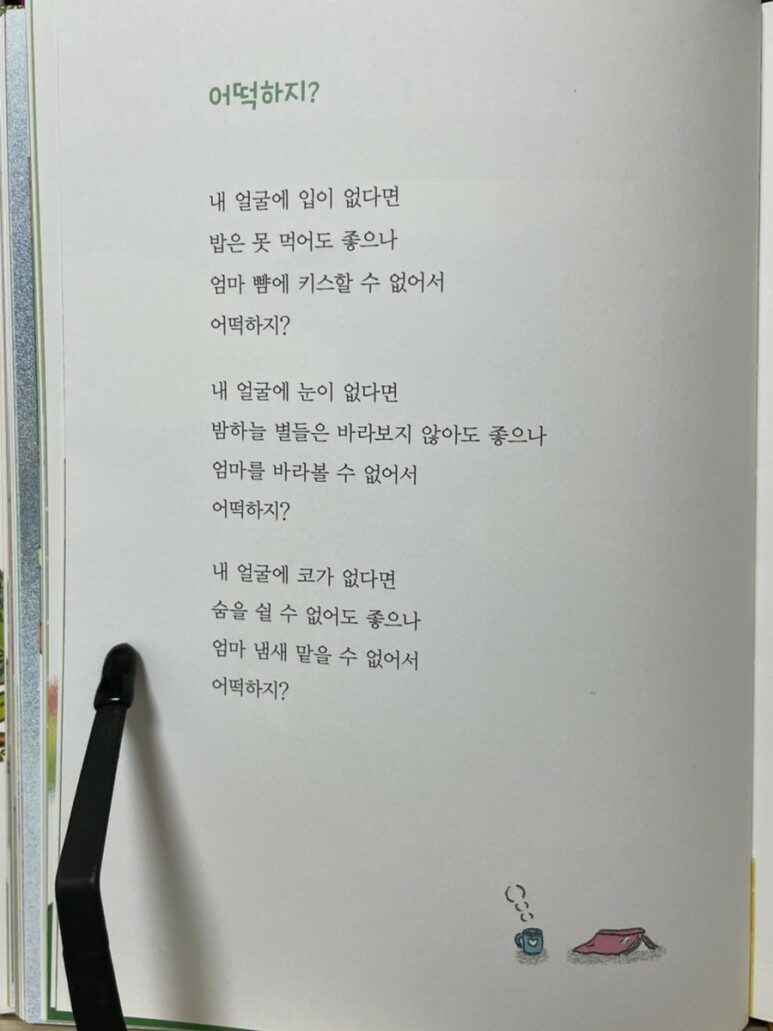 어떡하지?
내 얼굴에 입이 없다면
밥은 못 먹어도 좋으나
엄마 뺨에 키스할 수 없어서
어떡하지?
내 얼굴에 눈이 없다면
밤하늘 별들은 바라보지 않아도 좋으나
엄마를 바라볼 수 없어서
어떡하지?
내 얼굴에 코가 없다면
숨을 쉴 수 없어도 좋으나
엄마 냄새 맡을 수 없어서
어떡하지?